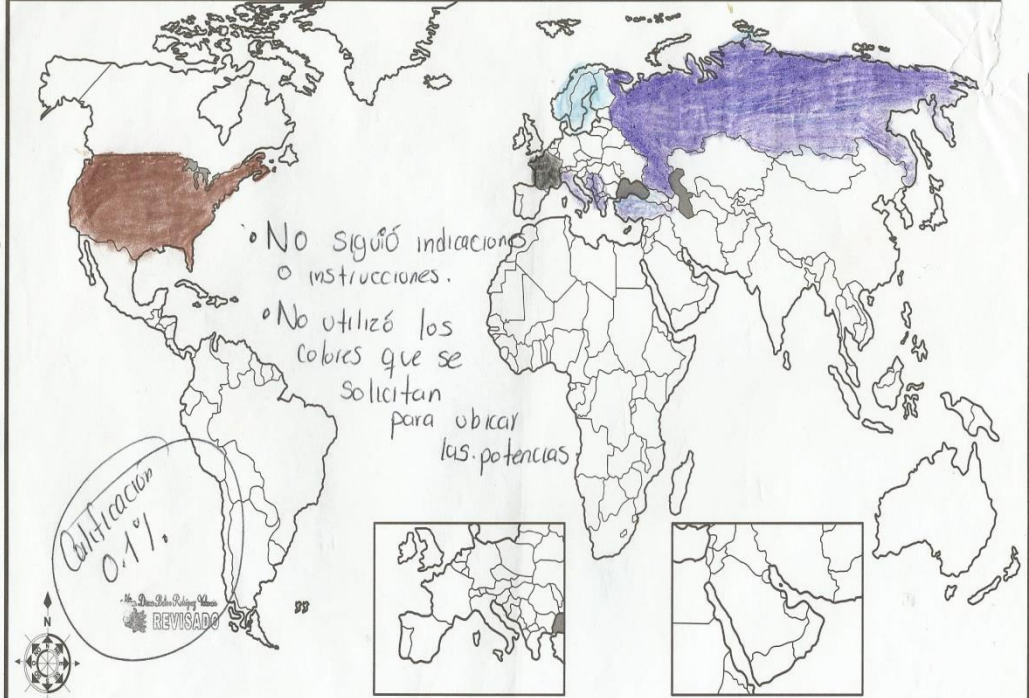 • No siguió indicaciones
o instrucciones.
• No utilizó los
colores que se
solicitan
para ubicar
las potencias
Calificación
0.1%
REVISADO
N